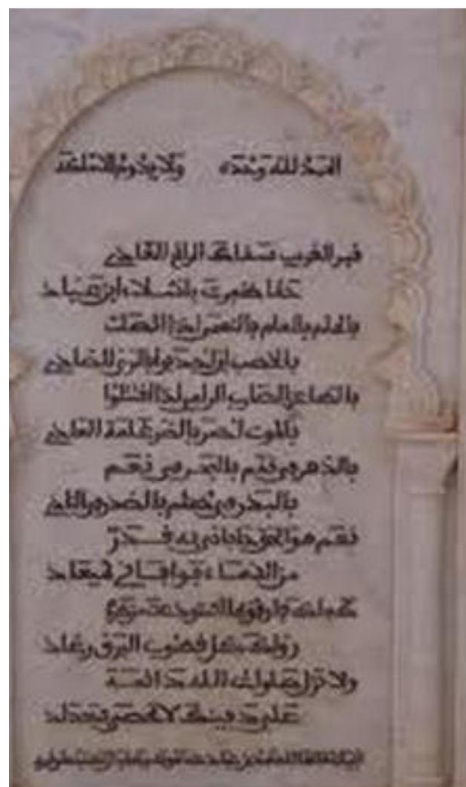 الحمد لله وحده ولا يدوم إلا ملكه
قبر الغريب سقاك الرائح الغادي
حقا ظفرت بأشلاء ابن عباد
بالحلم بالعلم بالنعمى إذا اتصلت
بالخصب إن أجدبوا بالري للصادي
بالطاعن الضارب الرامي إذا اقتتلوا
بالموت أحمر بالضرغامة العادي
بالدهر في نقم بالبحر في نعم
بالبدر في ظلم بالصدر في النادي
نعم هو الحق حاباني به قدر
من السماء فوافاني لميعاد
كفاك فارفق بما استودعت من كرم
رواك كل قطوب البرق رعاد
ولا تزل صلوات الله دائمة
على دفينك لا تحصى بتعداد